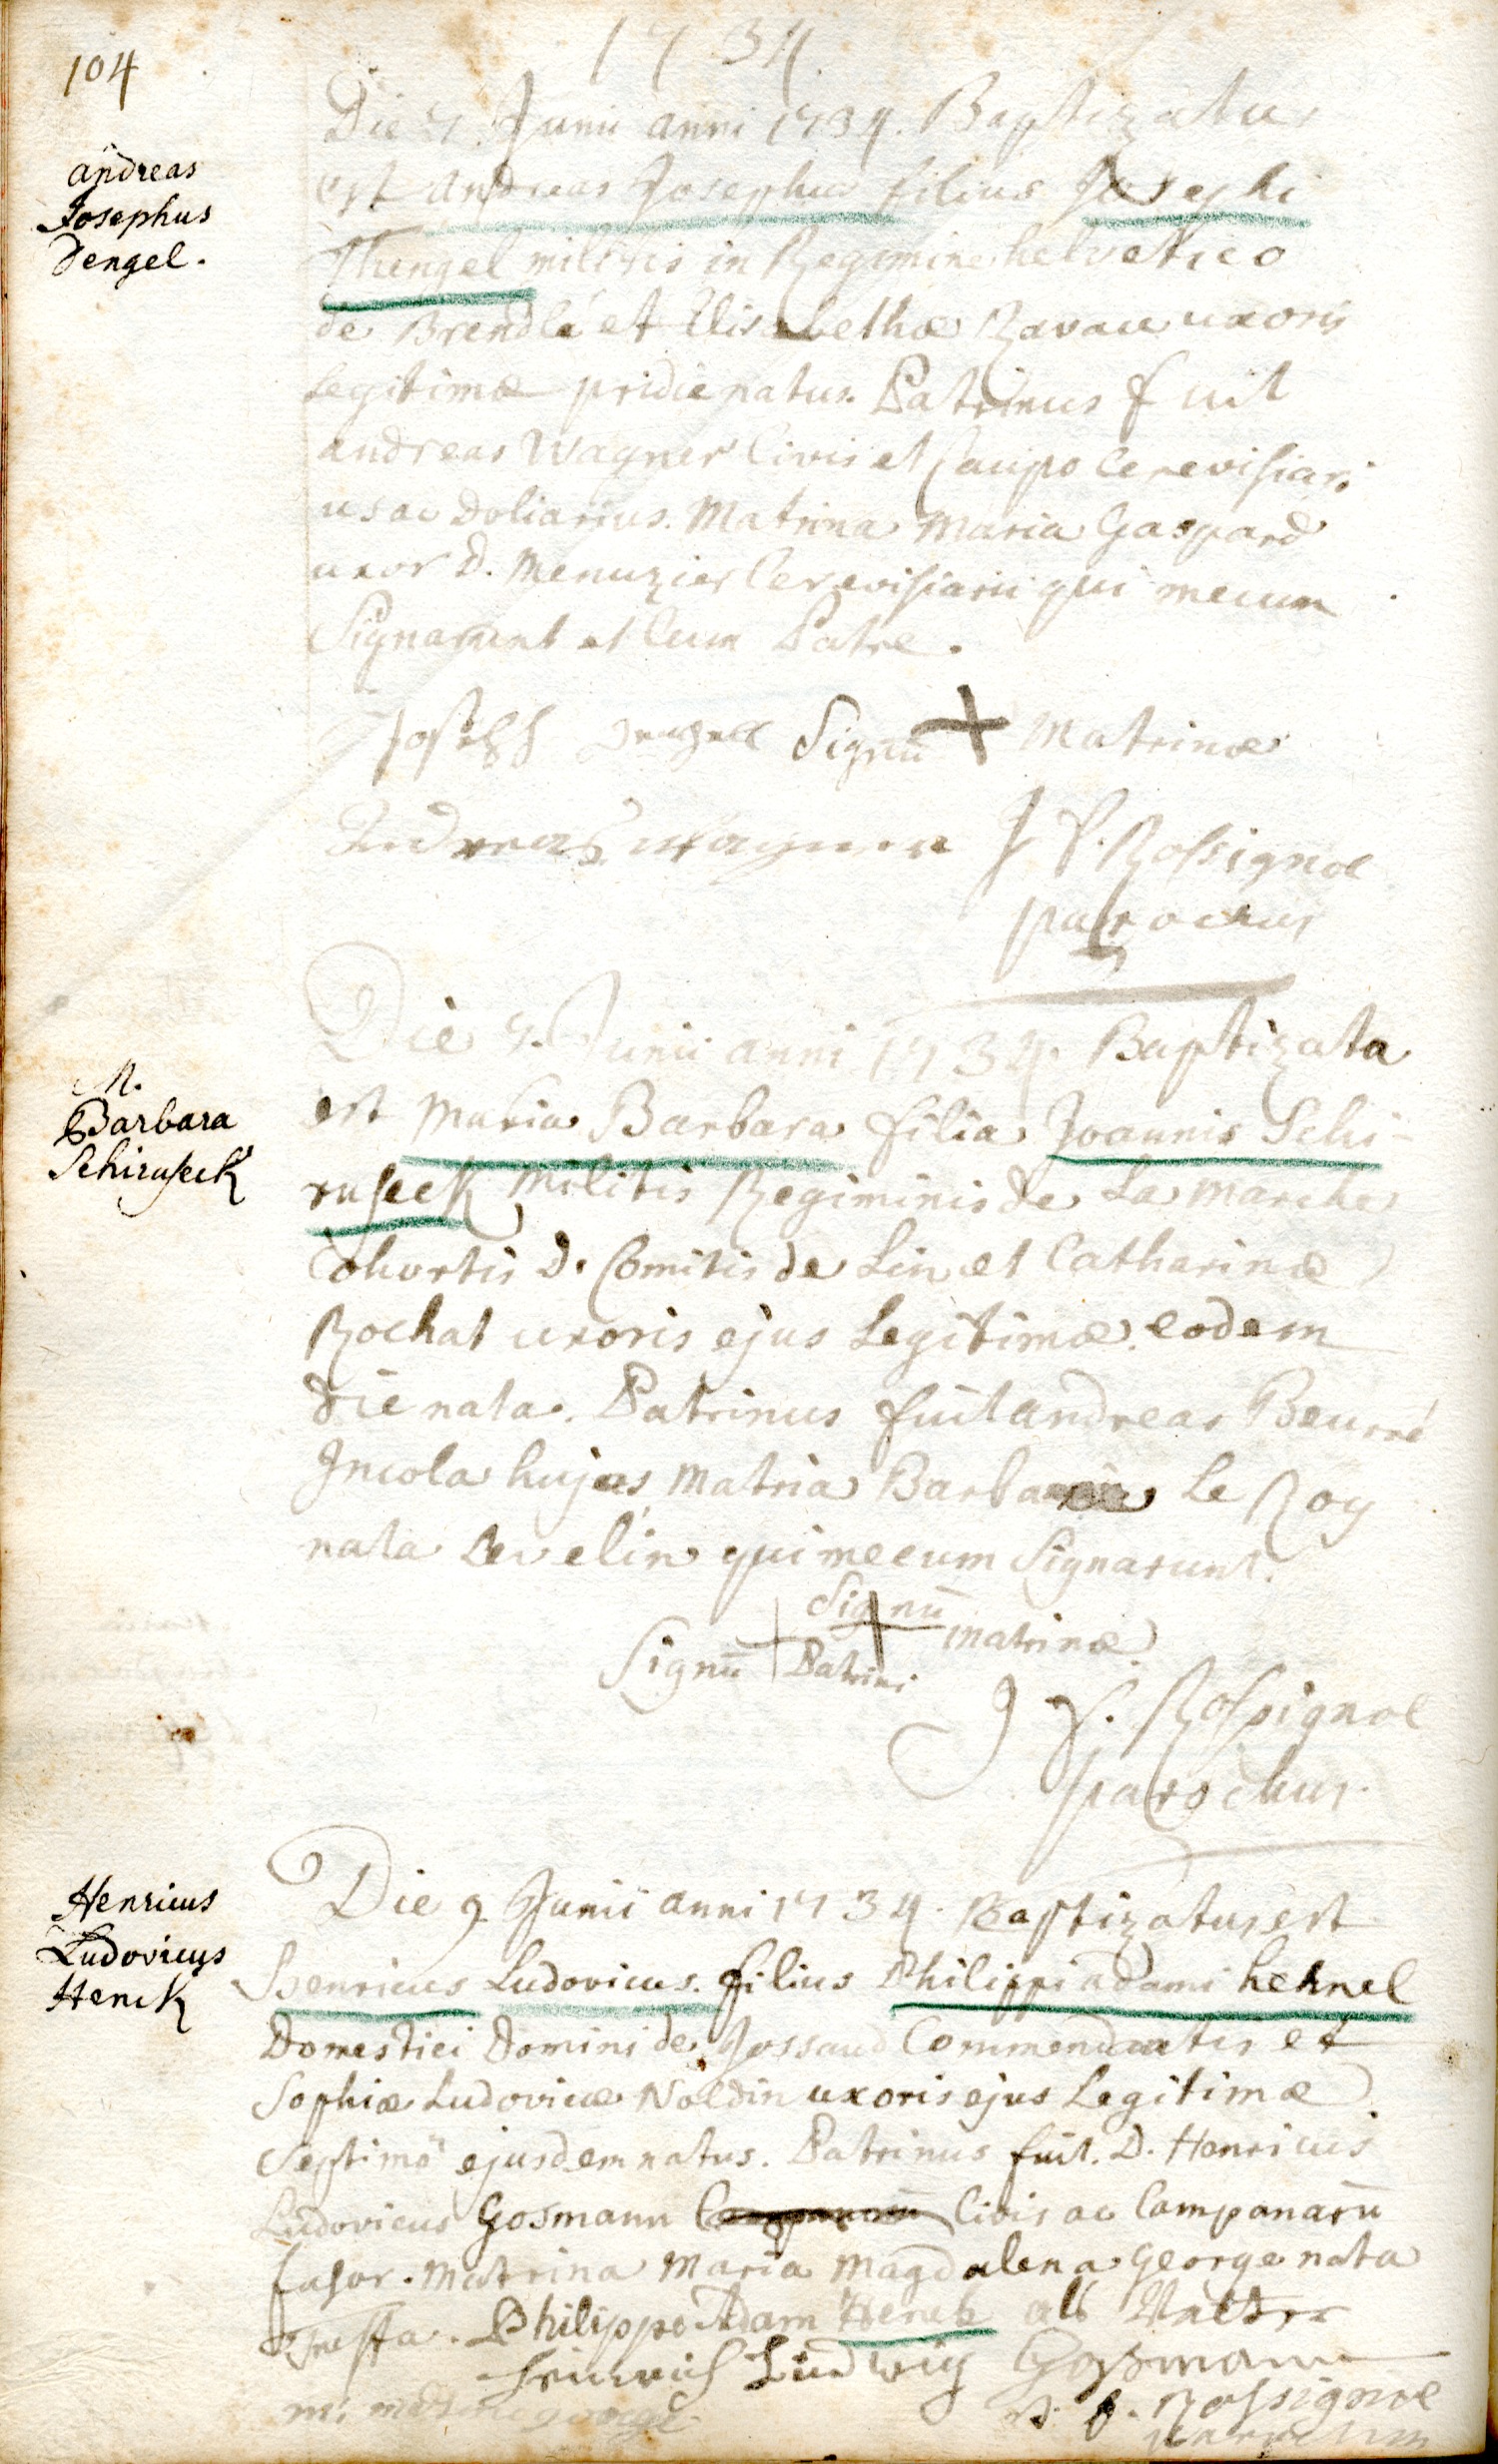 104
1734
andreas
Josephus
Dengel.
Die 7. Junii anni 1734. Baptizatus
est andreas Josephus filius Josephi
Thengel militis in Regimine helvetico
de Brendlé et Elisabethæ uxoris
legitimæ pridie natus. Patrinus fuit
andreas Wagner Civis et Caupo Cerevisiari
us ac Doliarius. Matrina Maria Gaspard
uxor D. Menuzier Cerevisiarii qui mecum
Signarunt et Cum Patre.
Joseph Signū + Matrinæ
Andreas Wagner J P. Rossignol
parochus
M.
Barbara
Schiruseck
Die 7. Junii anni 1734. Baptizata
est Maria Barbara filia Joannis Schi-
ruseck Militis Regiminis de La marche
Cohortis D. Comitis de Lin et Catharinæ
Rochat uxoris ejus Legitimæ eodem
die nata. Patrinus fuit andreas Beurré
Incola hujas Matria Barbara Le Roy
nata qui mecum Signarunt.
Signū + matrinæ
Signū + Patrini
J P. Rossignol
parochus.
Henricus
Ludovicus
Henck
Die 9 Junii anni 1734. Baptizatus est
Henricus Ludovicus. filius Philippi adami hehnel
Domestici Domini de Jossaud Commendantis et
Sophiæ Ludovicæ Noldin uxoris ejus Legitimæ
Septimo ejusdem natus. Patrinus fuit. D. Henricus
Ludovicus Gosmann Civis ac Campanarū
fusor. Matrina Maria Magdalena George nata
Philipps Adam Henck als Vatter
Heinrich Ludwig Gosmann
J. P. Rossignol
parochus